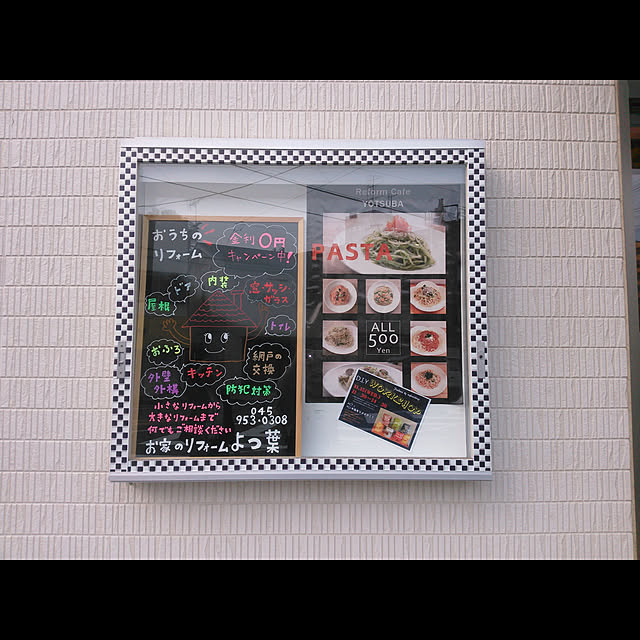 おうちの
リフォーム
金利0円
キャンペーン中!
内装
ドア
窓サッシ・
ガラス
屋根
トイレ
おふろ
網戸の
交換
外壁
外構
キッチン
防犯対策
小さなリフォームから
大きなリフォームまで
何でもご相談ください
045
953-0308
お家のリフォームよつ葉
Reform Cafe
YOTSUBA
PASTA
ALL
500
Yen
D.I.Y WORKSHOP